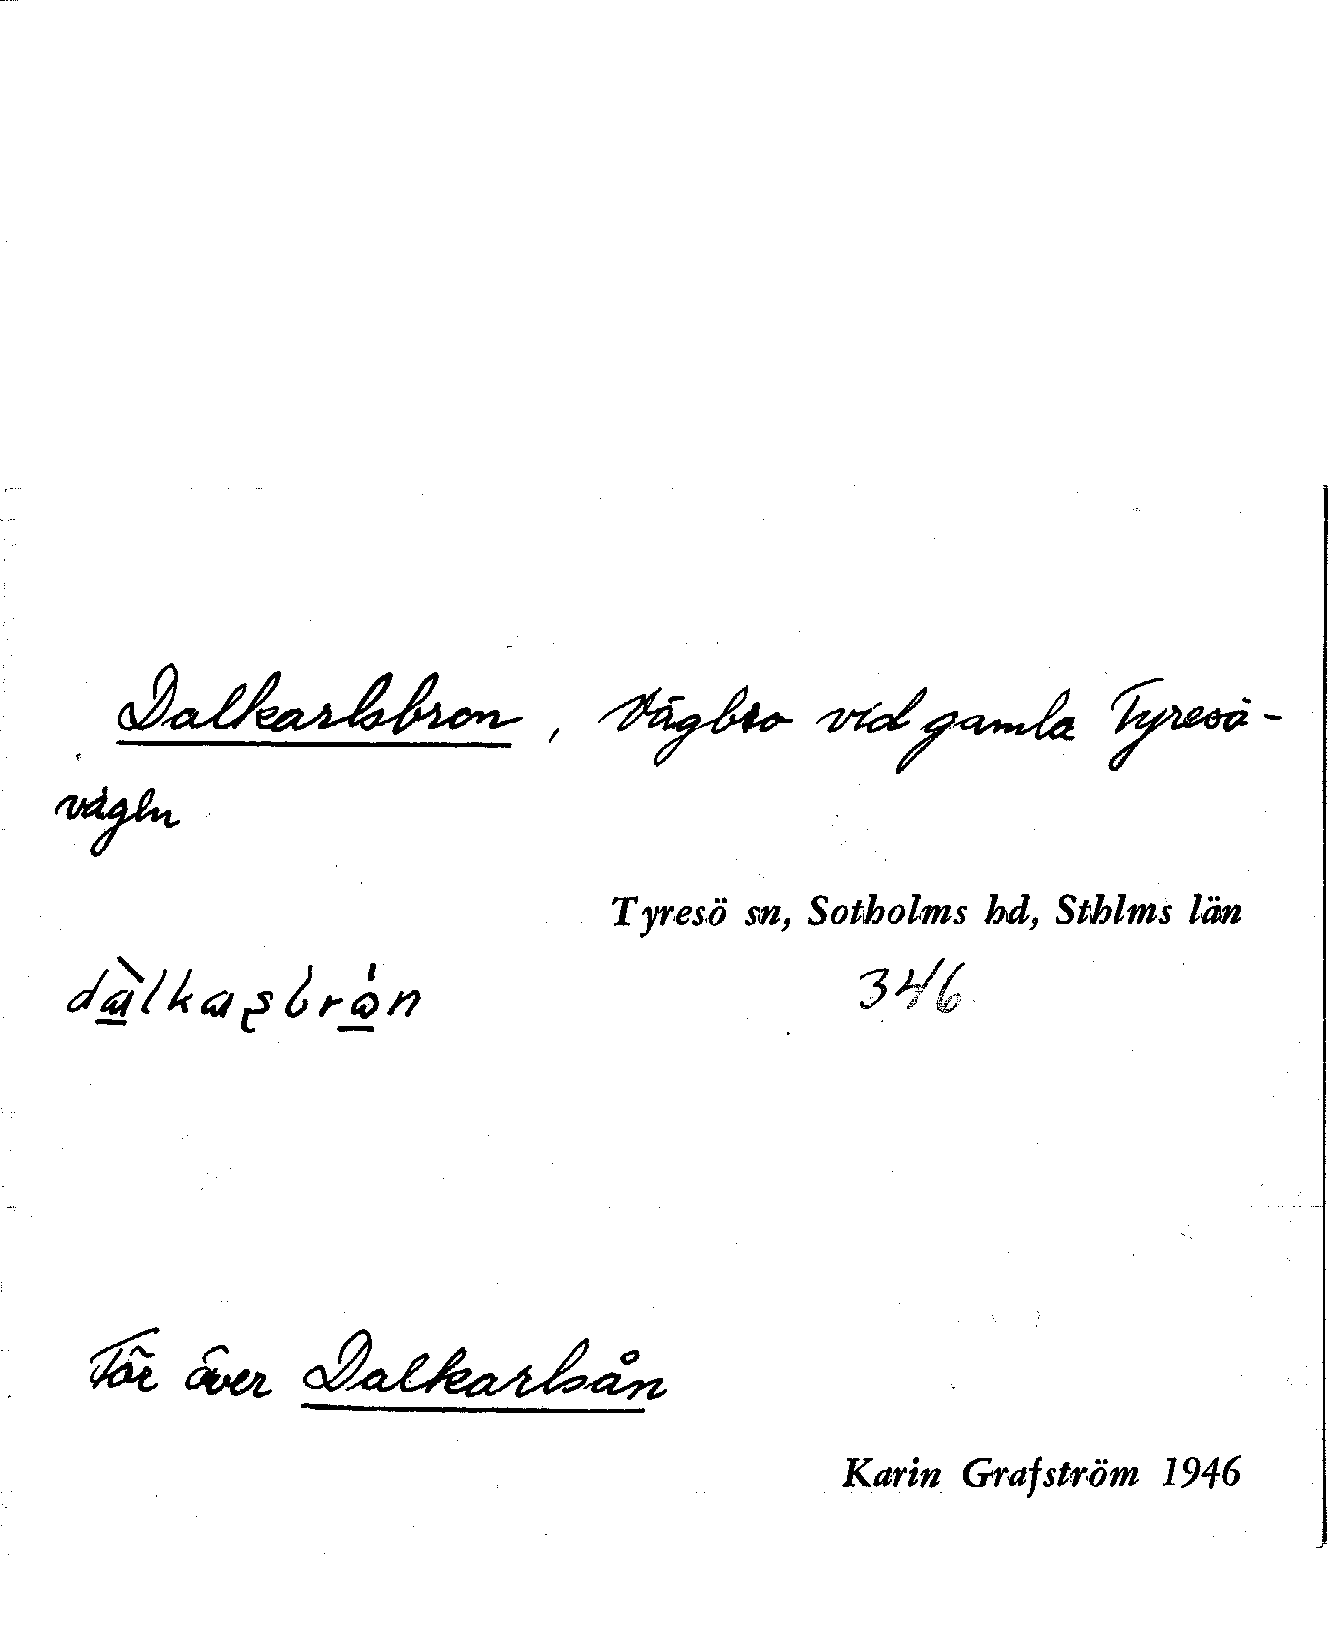 Dalkarlsbron, Vägbro vid gamla Tyresö-
vägen
Tyresö sn, Sotholms hd, Sthlms län
346
Går över Dalkarlsån
Karin Grafström 1946